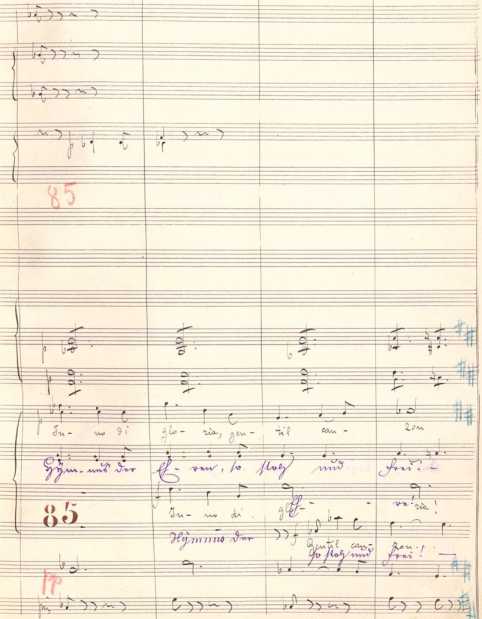 85
In- no di glo- ria, gen- til can- zon
Hym- nus der Eh- ren, so stolz und frei!
85
In- no di glo- ria!
Hymnus der Eh- re
Gentil can- zon.
so stolz und frei! —
pp